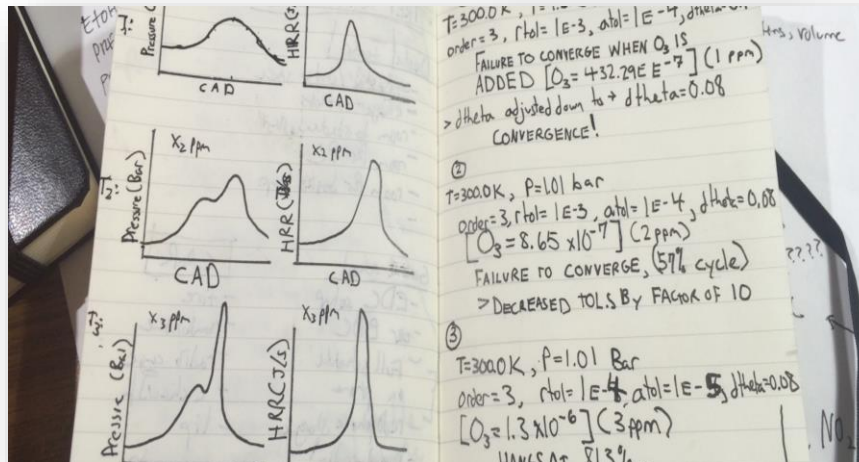 Pressure (
HRR(J/
CAD
CAD
T2:
X2 ppm
X2 ppm
Pressure (Bar)
HRR
CAD
CAD
X3 ppm
X3 ppm
Pressure (Bar)
HRR(J/s)
T=300.0K,
order=3, rtol=1E-3, atol=1E-4, dtheta=0.
FAILURE TO CONVERGE WHEN O3 IS
ADDED [O3=432.29E E-7] (1 ppm)
> dtheta adjusted down to → dtheta=0.08
CONVERGENCE!
②
T=300.0K, P=1.01 bar
order=3, rtol=1E-3, atol=1E-4, dtheta=0.08
[O3=8.65 x10^-7] (2 ppm)
FAILURE TO CONVERGE, (57% cycle)
>DECREASED TOLS BY FACTOR OF 10
③
T=300.0K, P=1.01 Bar
Order=3, rtol=1E-4, atol=1E-5, dtheta=0.08
[O3=1.3 x10^-6] (3 ppm)
HANGS AT 81.3%
, volume
????
NO2